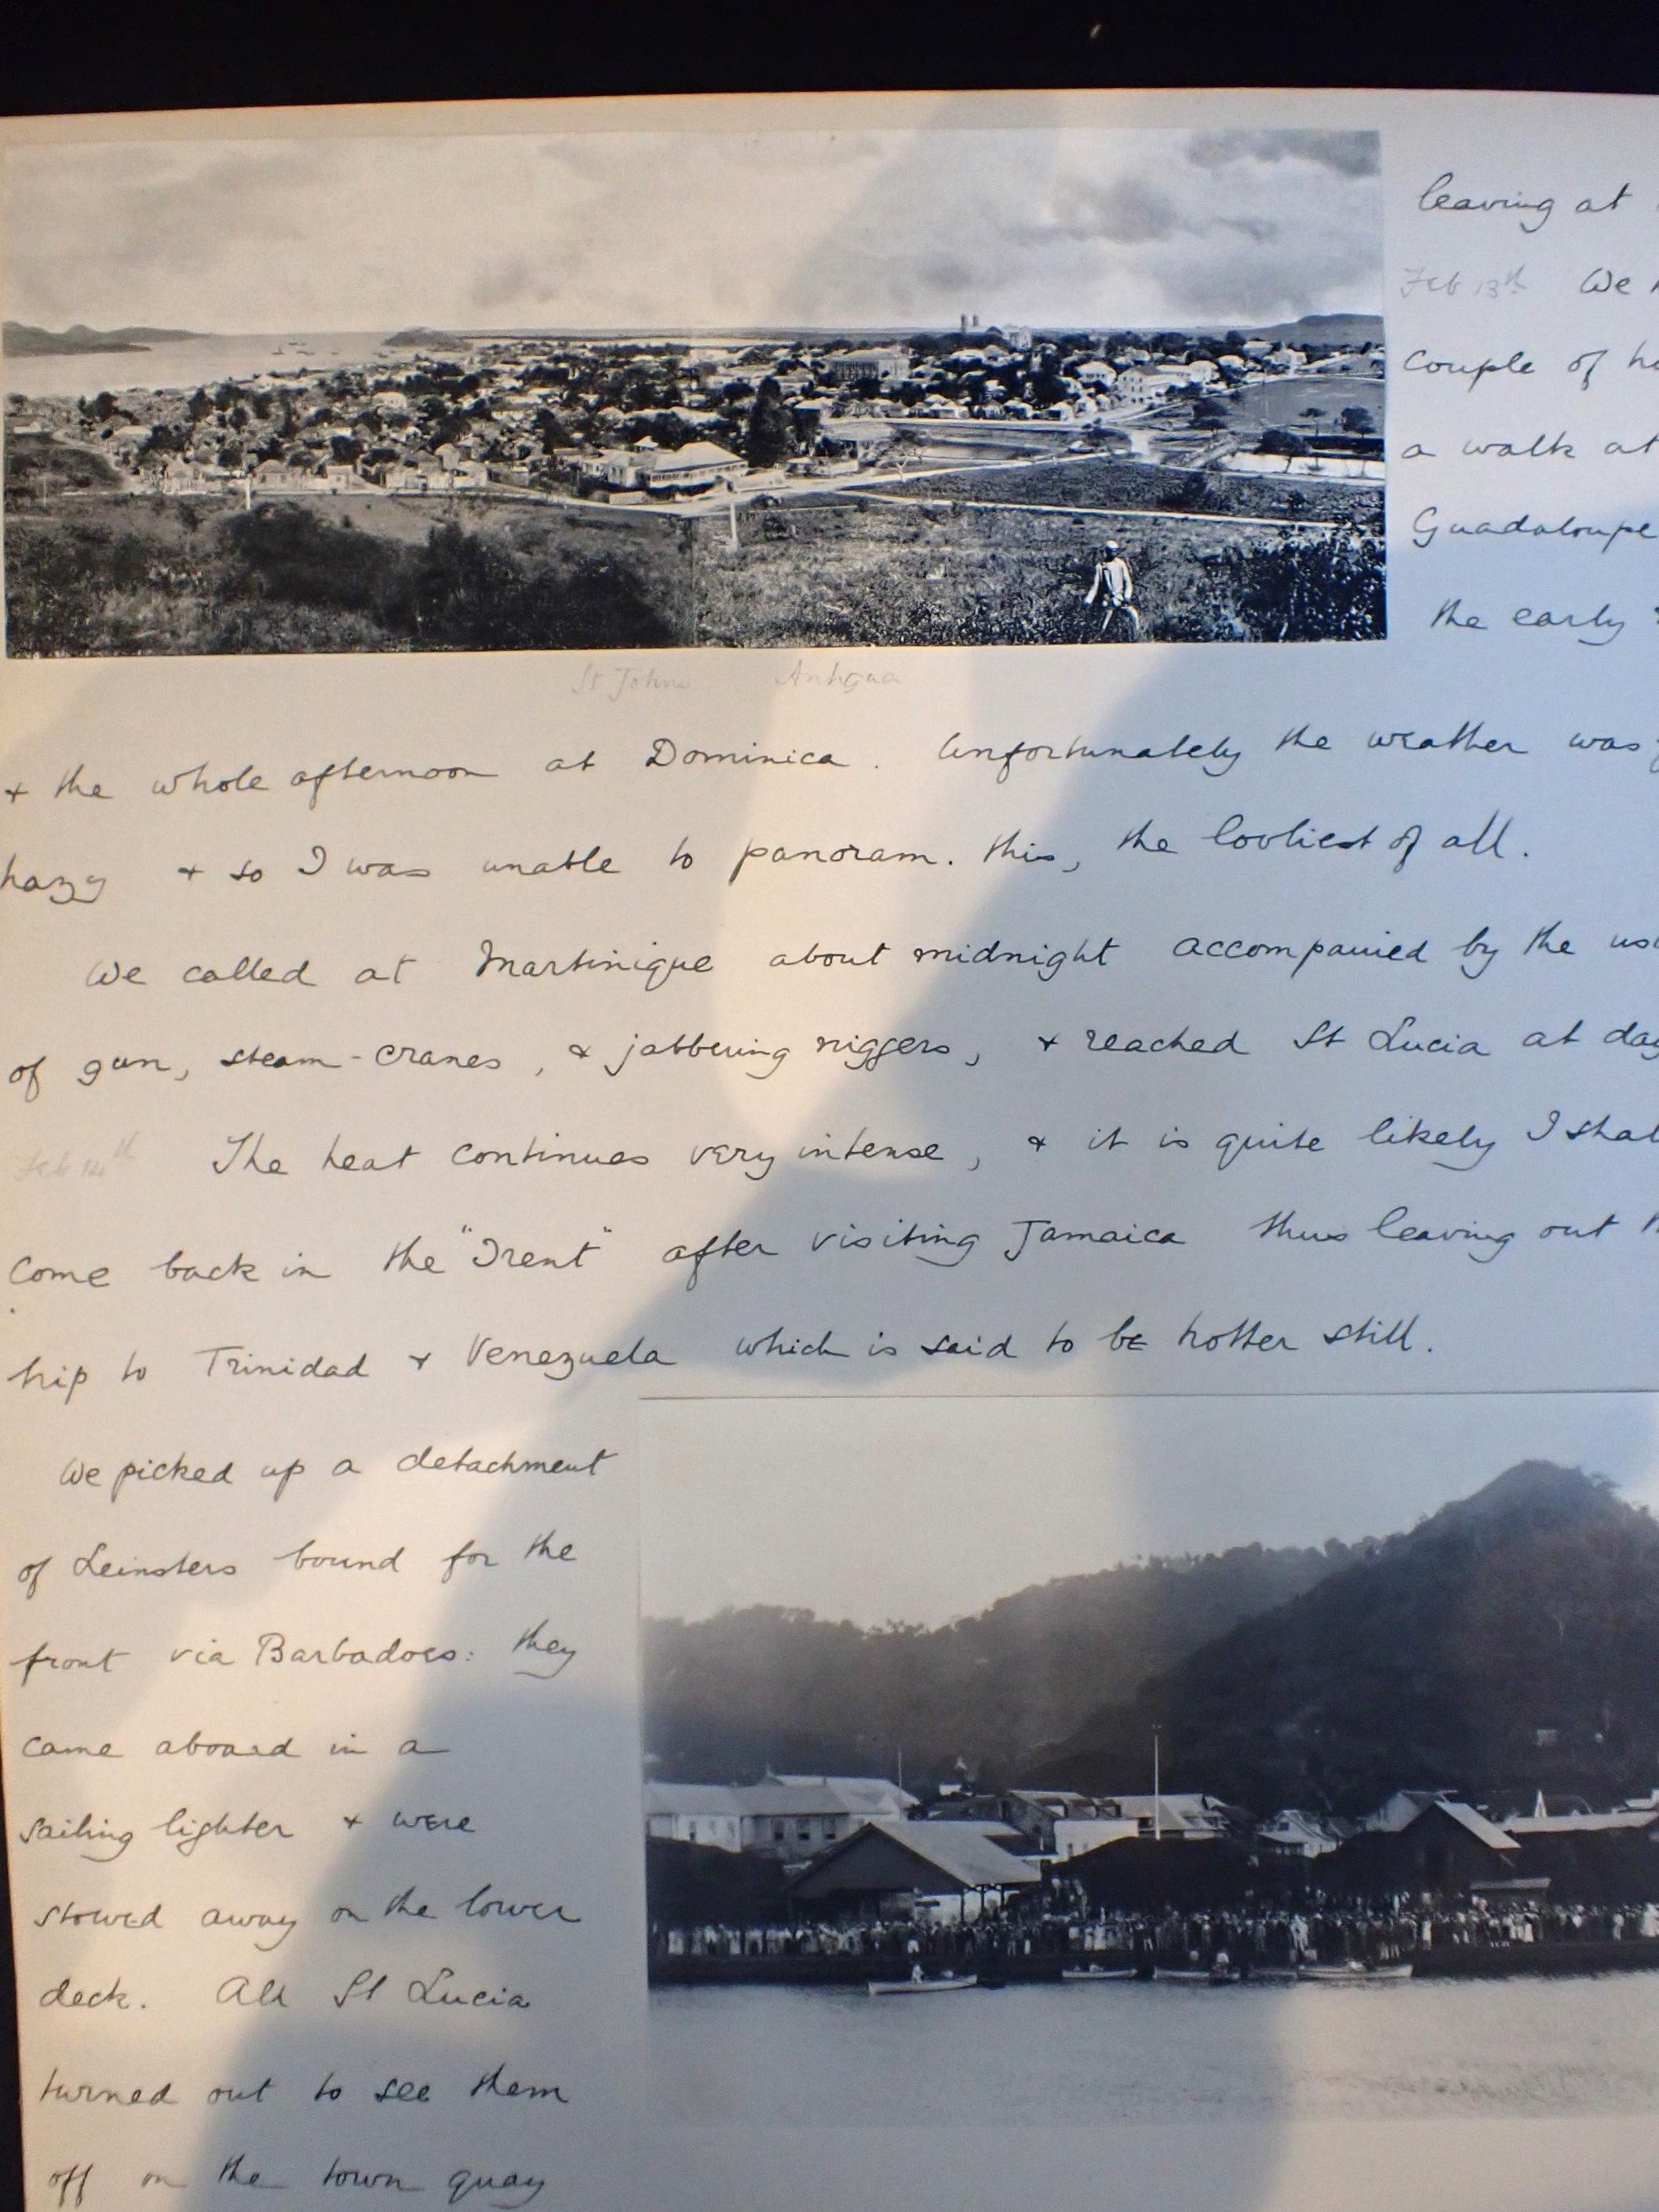 leaving at
Feb 13th We
couple of
a walk at
Guadaloupe
the early
St Johns Antigua
+ the whole afternoon at Dominica. Unfortunately the weather was
hazy + so I was unable to panoram. this, the lovliest of all.
We called at Martinique about midnight accompanied by the
of gun, steam-cranes, & jabbering niggers, + reached St Lucia at
Feb 14th The heat continues very intense, & it is quite likely I
come back in the "Trent" after visiting Jamaica thus leaving out
trip to Trinidad + Venezuela which is said to be hotter still.
We picked up a detachment
of Leinsters bound for the
front via Barbadoes: they
came aboard in a
sailing lighter + were
stowed away on the lower
deck. All St Lucia
turned out to see them
off on the town quay